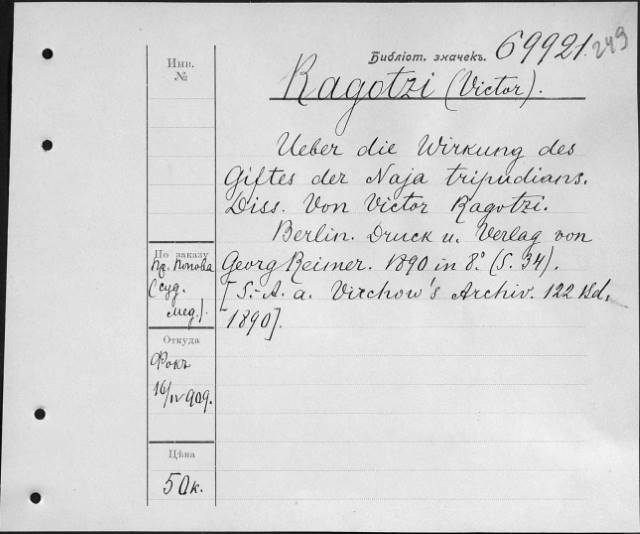 Библіот. значекъ. 69921. 249
Инв.
№
Ragotzi (Victor).
Ueber die Wirkung des
Giftes der Naja tripudians.
Diss. Von Victor Ragotzi.
Berlin. Druck u. Verlag von
Georg Reimer. 1890 in 8º. (S. 34).
[S.-A. a. Virchow's Archiv. 122 Bd.
1890].
По заказу
Пр. Попова
(суд.
мед.).
Откуда
Фокъ
16/IV 909.
Цѣна
50к.